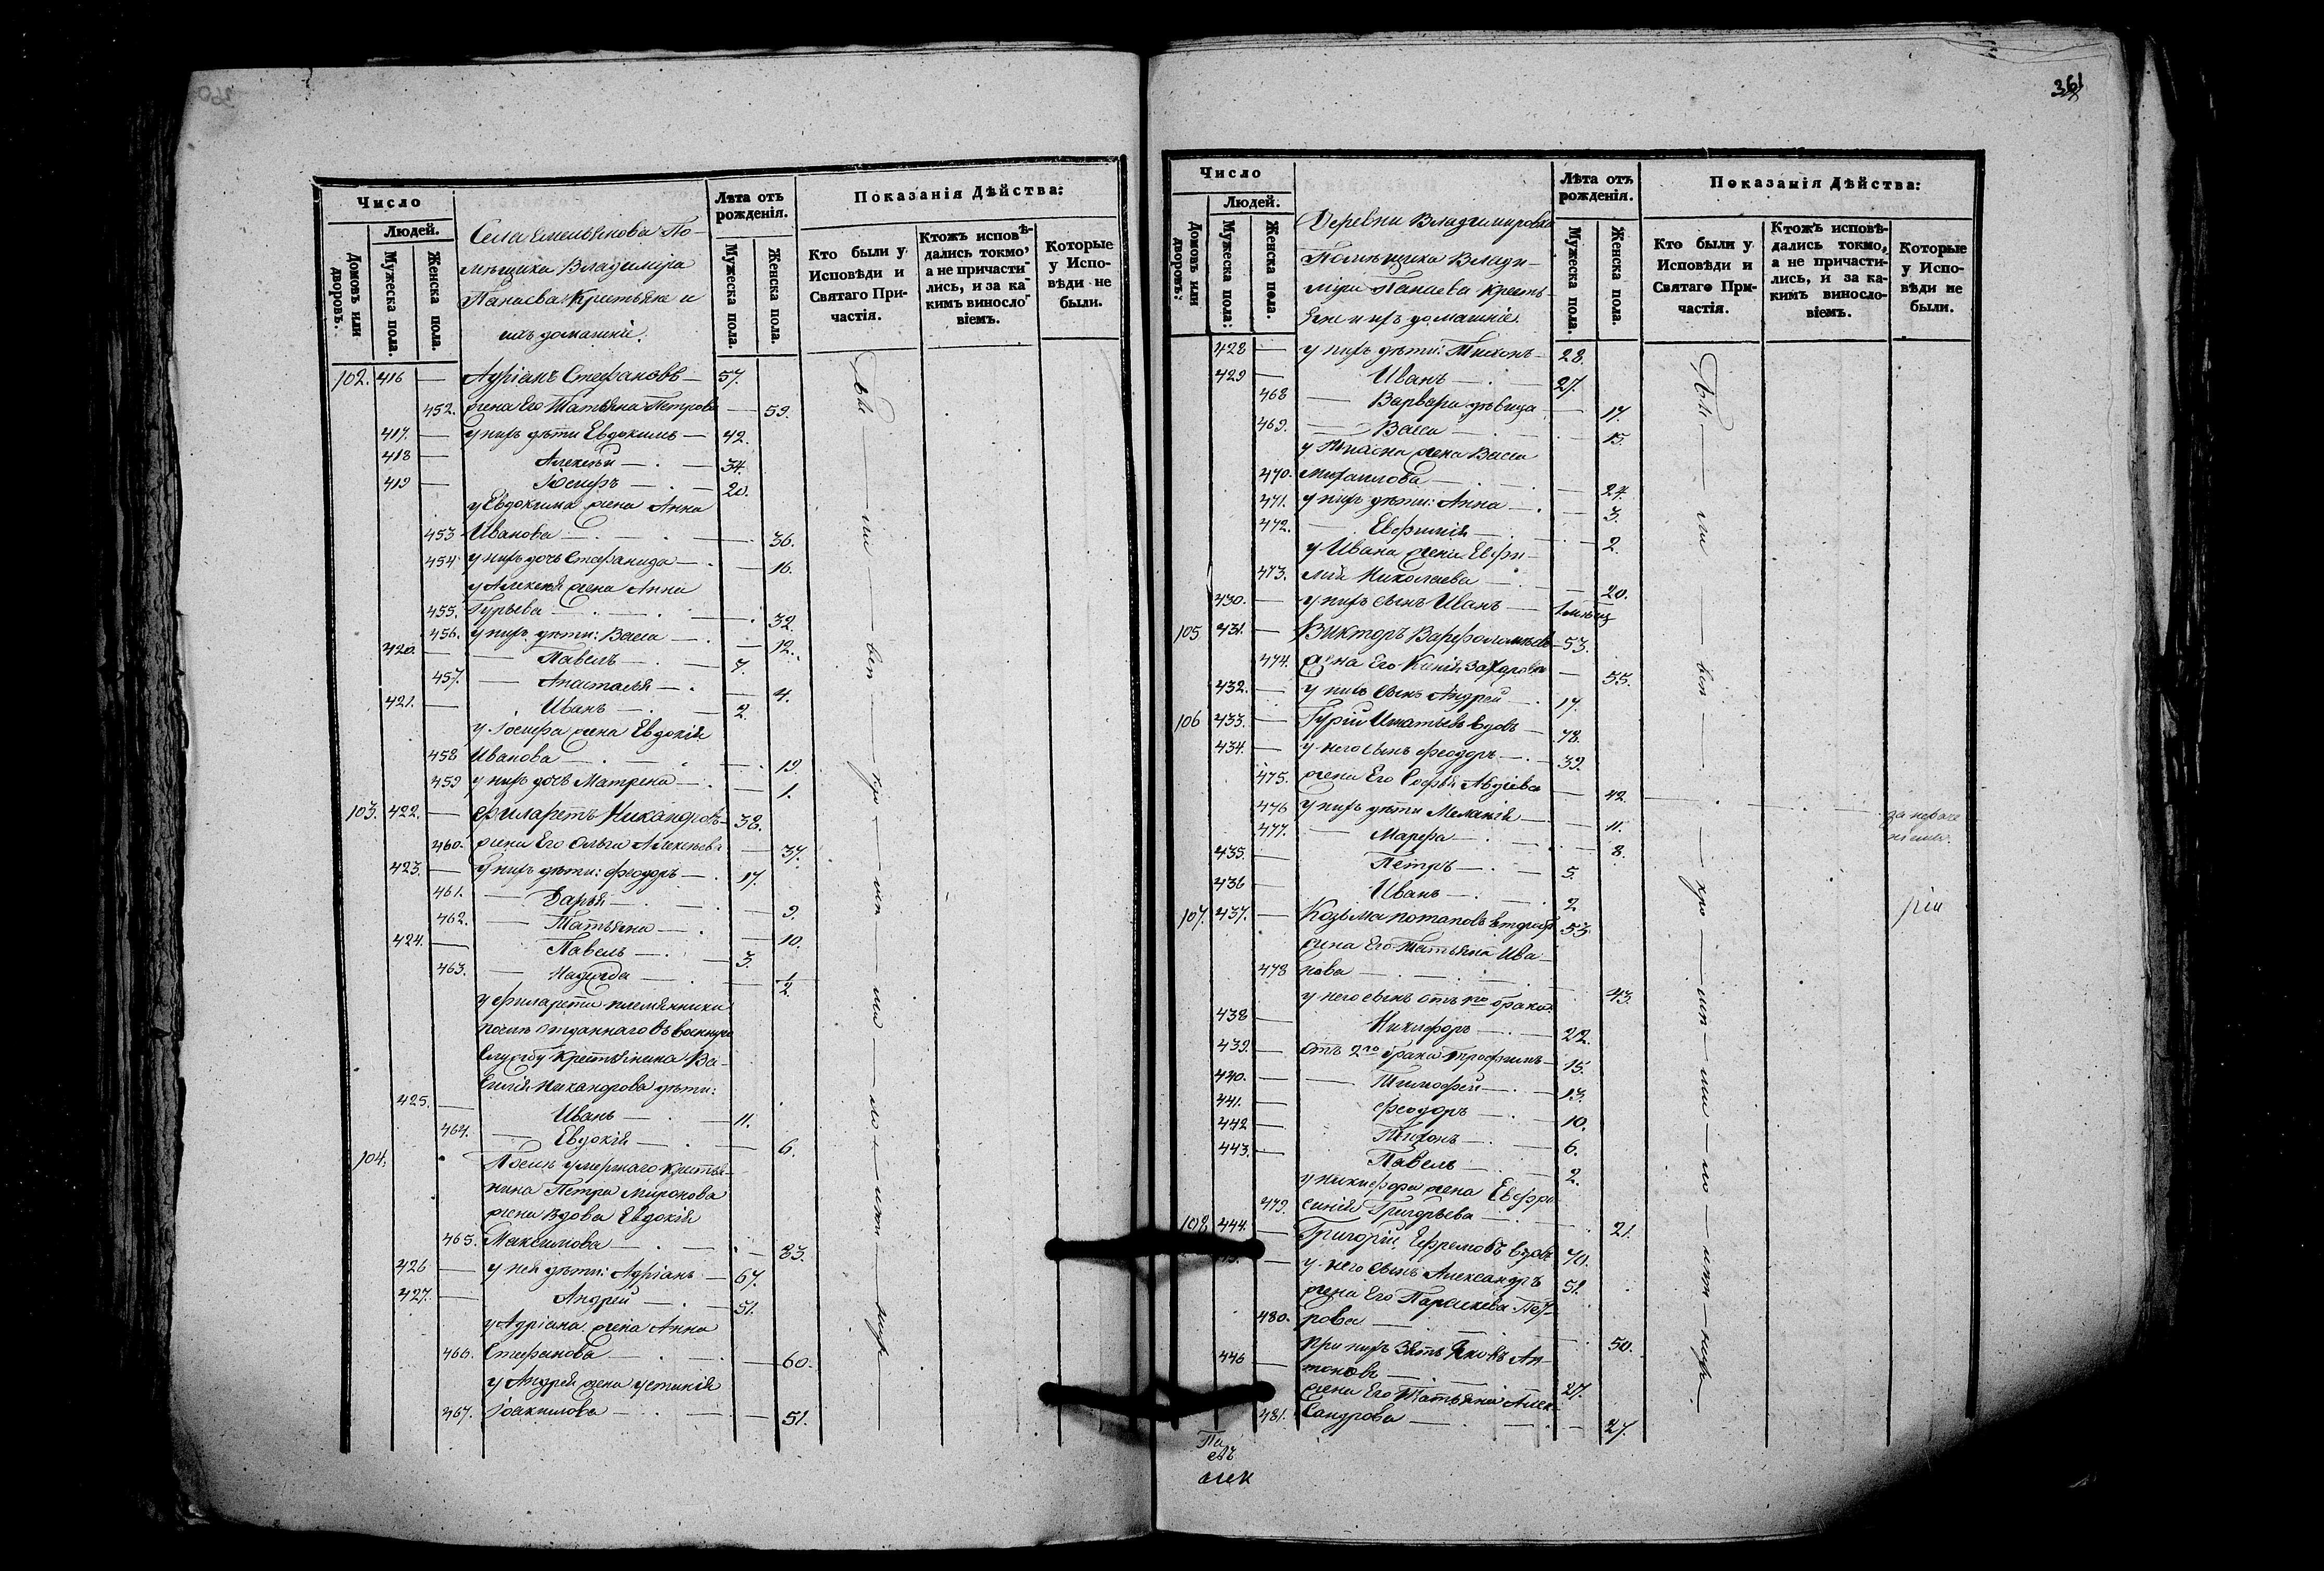 360
Число
Людей.
Домовъ или дворовъ.
Мужеска пола.
Женска пола.
Села Емельянова По-
мѣщика Владимiра
Панаева Крестьяне и
ихъ домашнiе.
Лѣта отъ рожденiя.
Мужеска пола.
Женска пола.
Показанiя Дѣйства:
Кто были у Исповѣди и Святаго При-частiя.
Ктожъ исповѣ-дались токмо, а не причасти-лись, и за ка-кимъ винослo-вiемъ.
Которые у Испо-вѣди не были.
102. 416 — Адрiанъ Стефановъ — 57.
452. жена Его Татьяна Петрова — 59.
417. — у нихъ дѣти Евдокимъ — 42.
418 — Алексѣй — 34.
419 — Iосифъ — 20.
у Евдокима жена Анна
453 Иванова — 36.
454 у нихъ дочь Стефанида — 16.
у Алексѣя жена Анна
455. Гурьева — 32.
456. у нихъ дѣти: Васса — 12.
420. — Павелъ — 7.
457. — Анастасiя — 4.
421. — Иванъ — 2.
у Iосифа жена Евдокiя
458 Иванова — 19.
459 у нихъ дочь Матрена — 1.
103. 422. — Филаретъ Никандровъ — 38.
460. жена Его Ольга Алексѣева — 37.
423. — У нихъ дѣти: Феодоръ — 17.
461. — Дарья — 9.
462. — Татьяна — 10.
424. — Павелъ — 3.
463. — Надежда — 1/2.
у Филарета племянники
послѣ отданнаго въ военную
службу Крестьянина Ва-
силiя Никандрова дѣти:
425. — Иванъ — 11.
464. — Евдокiя — 6.
104. Послѣ умершаго Крестья-
нина Петра Миронова
жена вдова Евдокiя
465. Максимова — 83.
426 — у ней дѣти: Адрiанъ — 67.
427. — Андрей — 51.
у Адрiана жена Анна
466. Стефанова — 60.
у Андрея жена Устинiя
467. Iоакимова — 51.
361
Число
Людей.
Домовъ или дворовъ:
Мужеска пола:
Женска пола.
Деревни Владимировки
Помѣщика Влади-
мiра Панаева Кресть-
яне и ихъ домашнiе.
Лѣта отъ рожденiя.
Мужеска пола.
Женска пола.
Показанiя Дѣйства:
Кто были у Исповѣди и Святаго При-частiя.
Ктожъ исповѣ-дались токмо, а не причасти-лись, и за ка-кимъ винослo-вiемъ.
Которые у Испо-вѣди не были.
428 — у нихъ дѣти: Тихонъ — 28.
429 — Иванъ — 27.
468 — Варвара дѣвица — 17.
469. — Васса — 15.
у Тихона жена Васса
470. Михаилова — 24.
471. у нихъ дѣти: Анна — 3.
472. — Евфимiя — 2.
у Ивана жена Евфи-
473. мiя Николаева — 20.
430. — у нихъ сынъ Иванъ —
105 431. — Викторъ Варфоломѣевъ — 53.
474. жена Его Ксенiя Захарова — 55.
432. — у нихъ сынъ Андрей — 17.
106 433. — Гурiй Игнатьевъ вдовъ — 78.
434. — у него сынъ Феодоръ — 39.
475. жена Его Софья Авдiева — 42.
476 у нихъ дѣти Меланiя — 11.
477. — Марфа — 8.
435. — Петръ — 5.
436 — Иванъ — 2
107. 437. — Козьма Потаповъ 53.
жена Его Татьяна Ива-
478 нова — 43.
у него сынъ отъ 1го брака:
438 — Никифоръ — 22.
439. — отъ 2го брака Трофимъ — 15.
440. — Тимофей — 13.
441. — Феодоръ — 10.
442 — Тихонъ — 6.
443. — Павелъ — 2.
у Никифора жена Евфро-
479. синiя Григорьева — 21.
108 444. — Григорiй Ефремовъ вдовъ 70.
— у него сынъ Александръ 51.
жена Его Параскева Пет-
480. рова — 50.
При нихъ Зять Яковъ Ан-
446 — тоновъ — 27.
жена Его Татьяна Алек-
481. сандрова — 27.